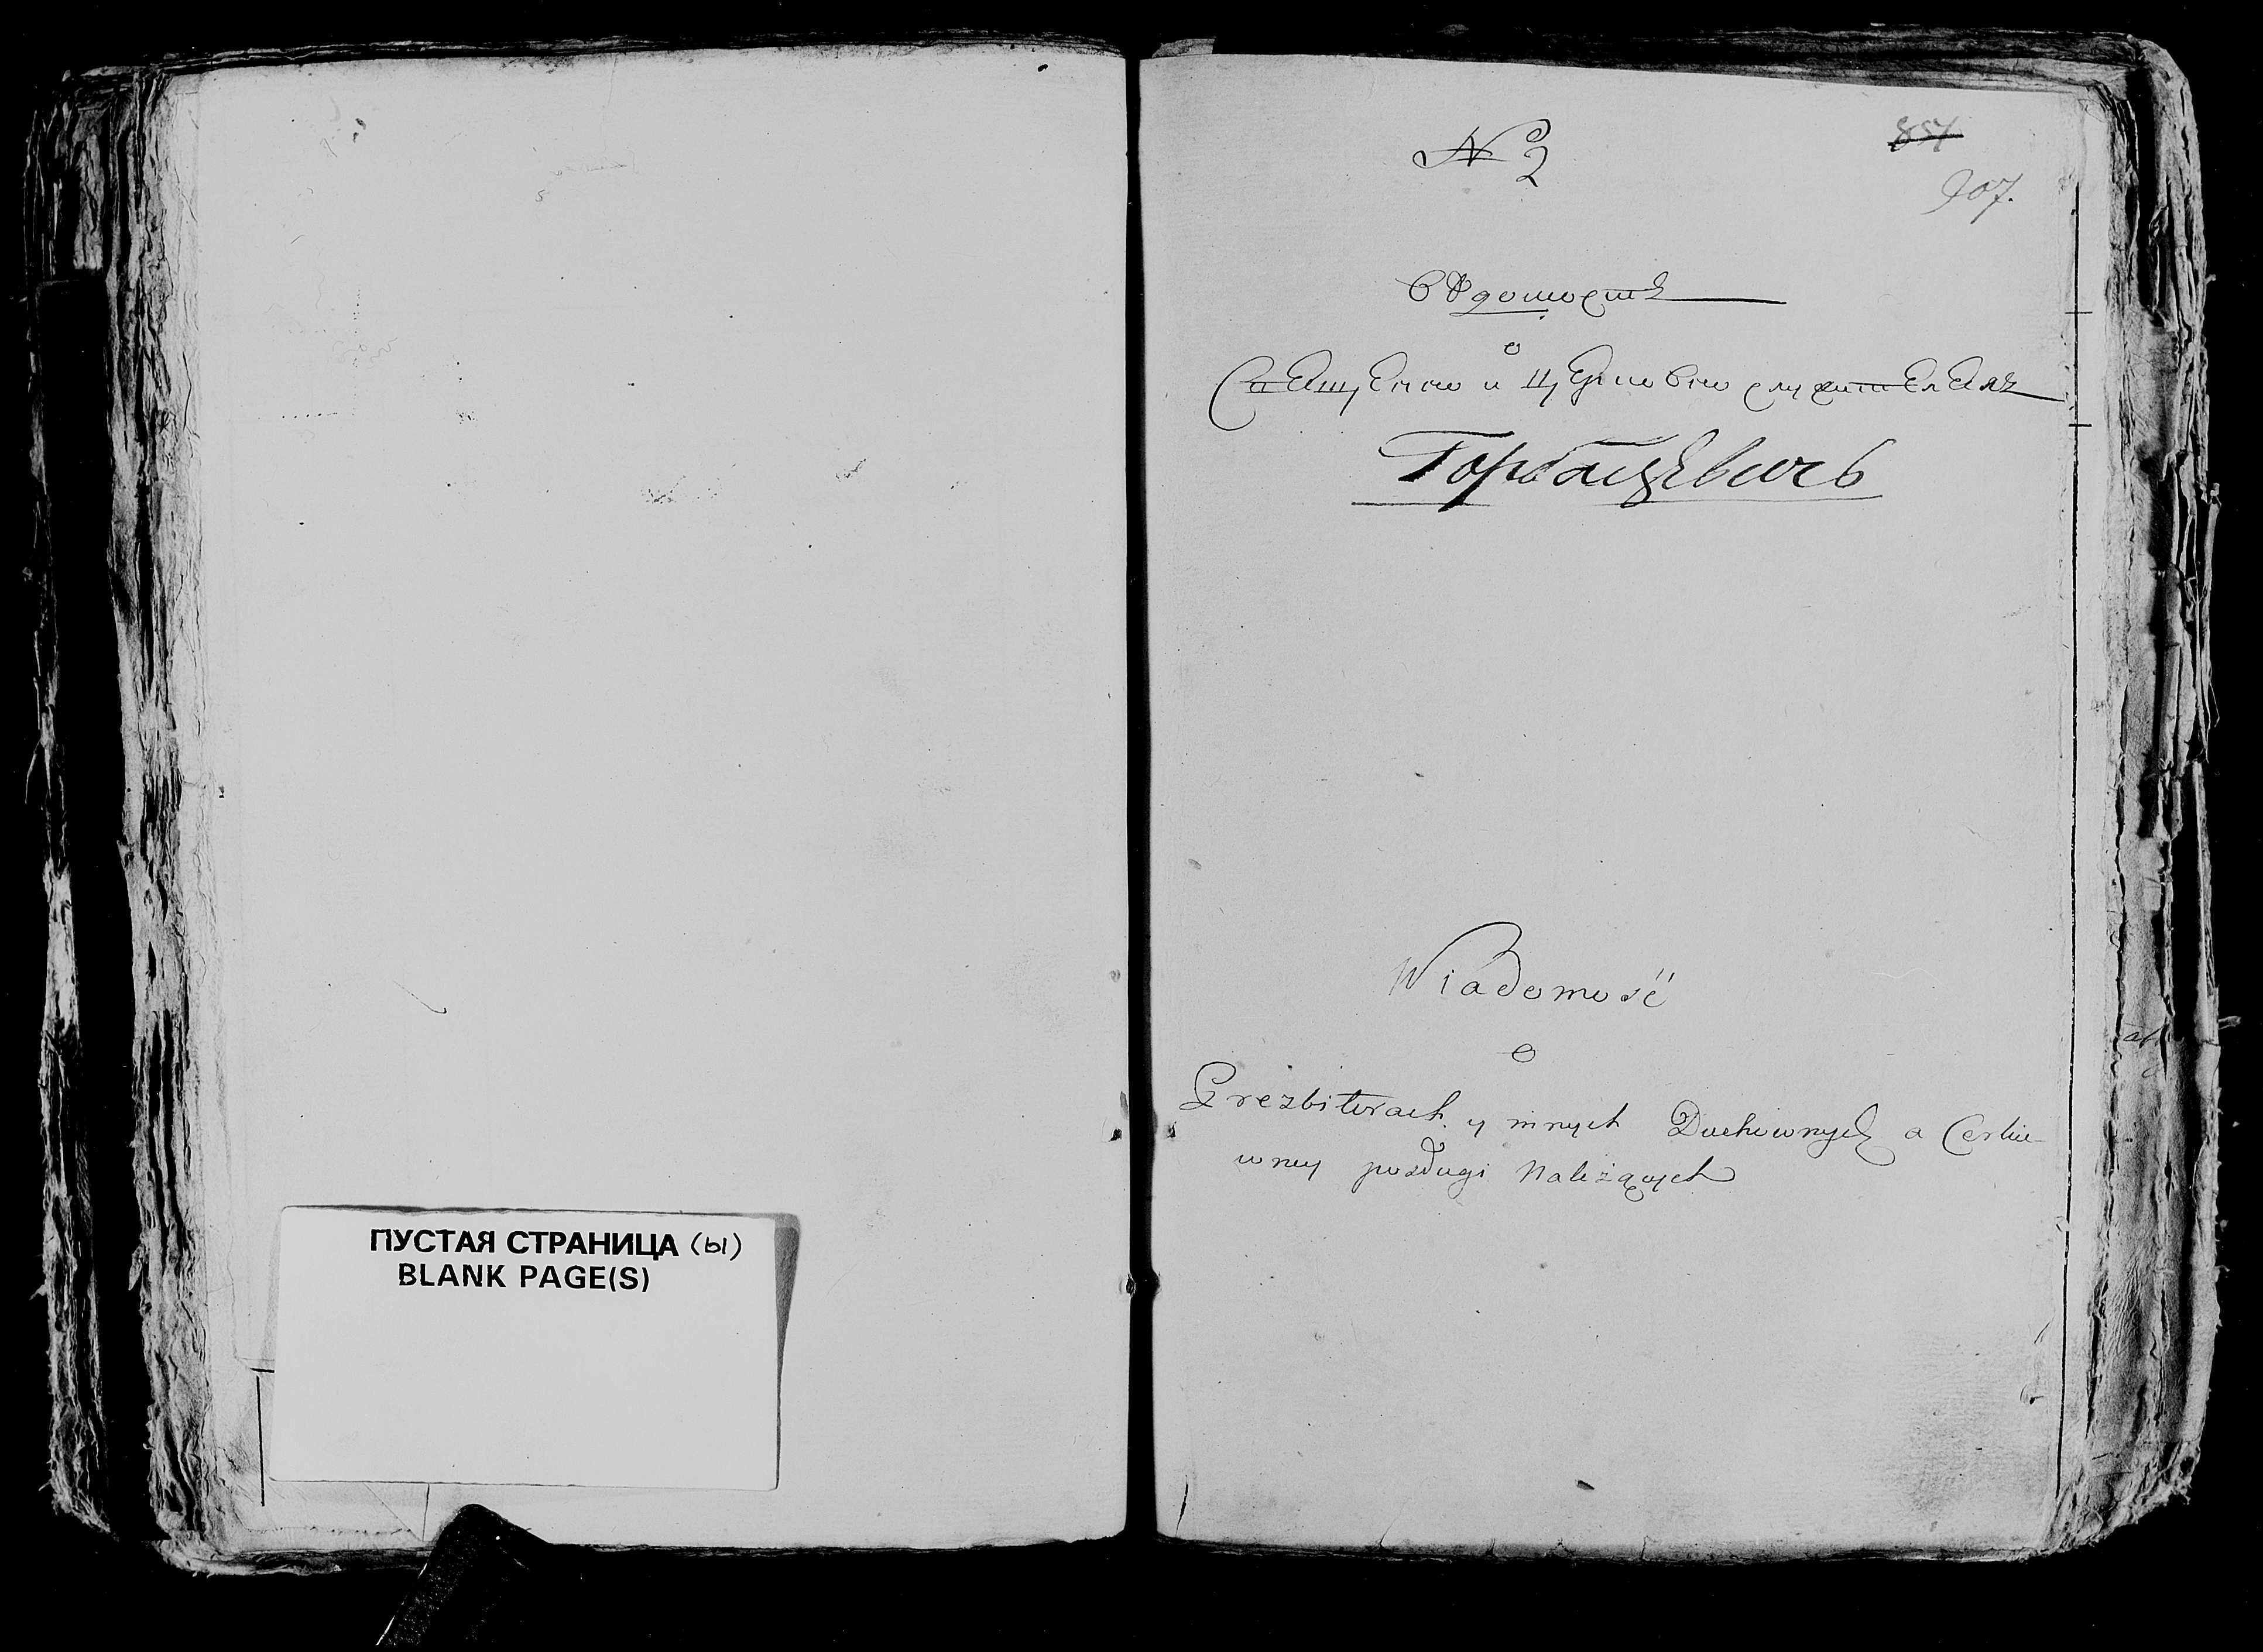 ПУСТАЯ СТРАНИЦА (Ы)
BLANK PAGE(S)
N 2
854
907.
вѣдомость
о
Священно и церковно служителяхъ
Горбацевичъ
Wiadomość
o
Prezbiterach y innych Duchownych a Cerkie-
wney posługi Należących